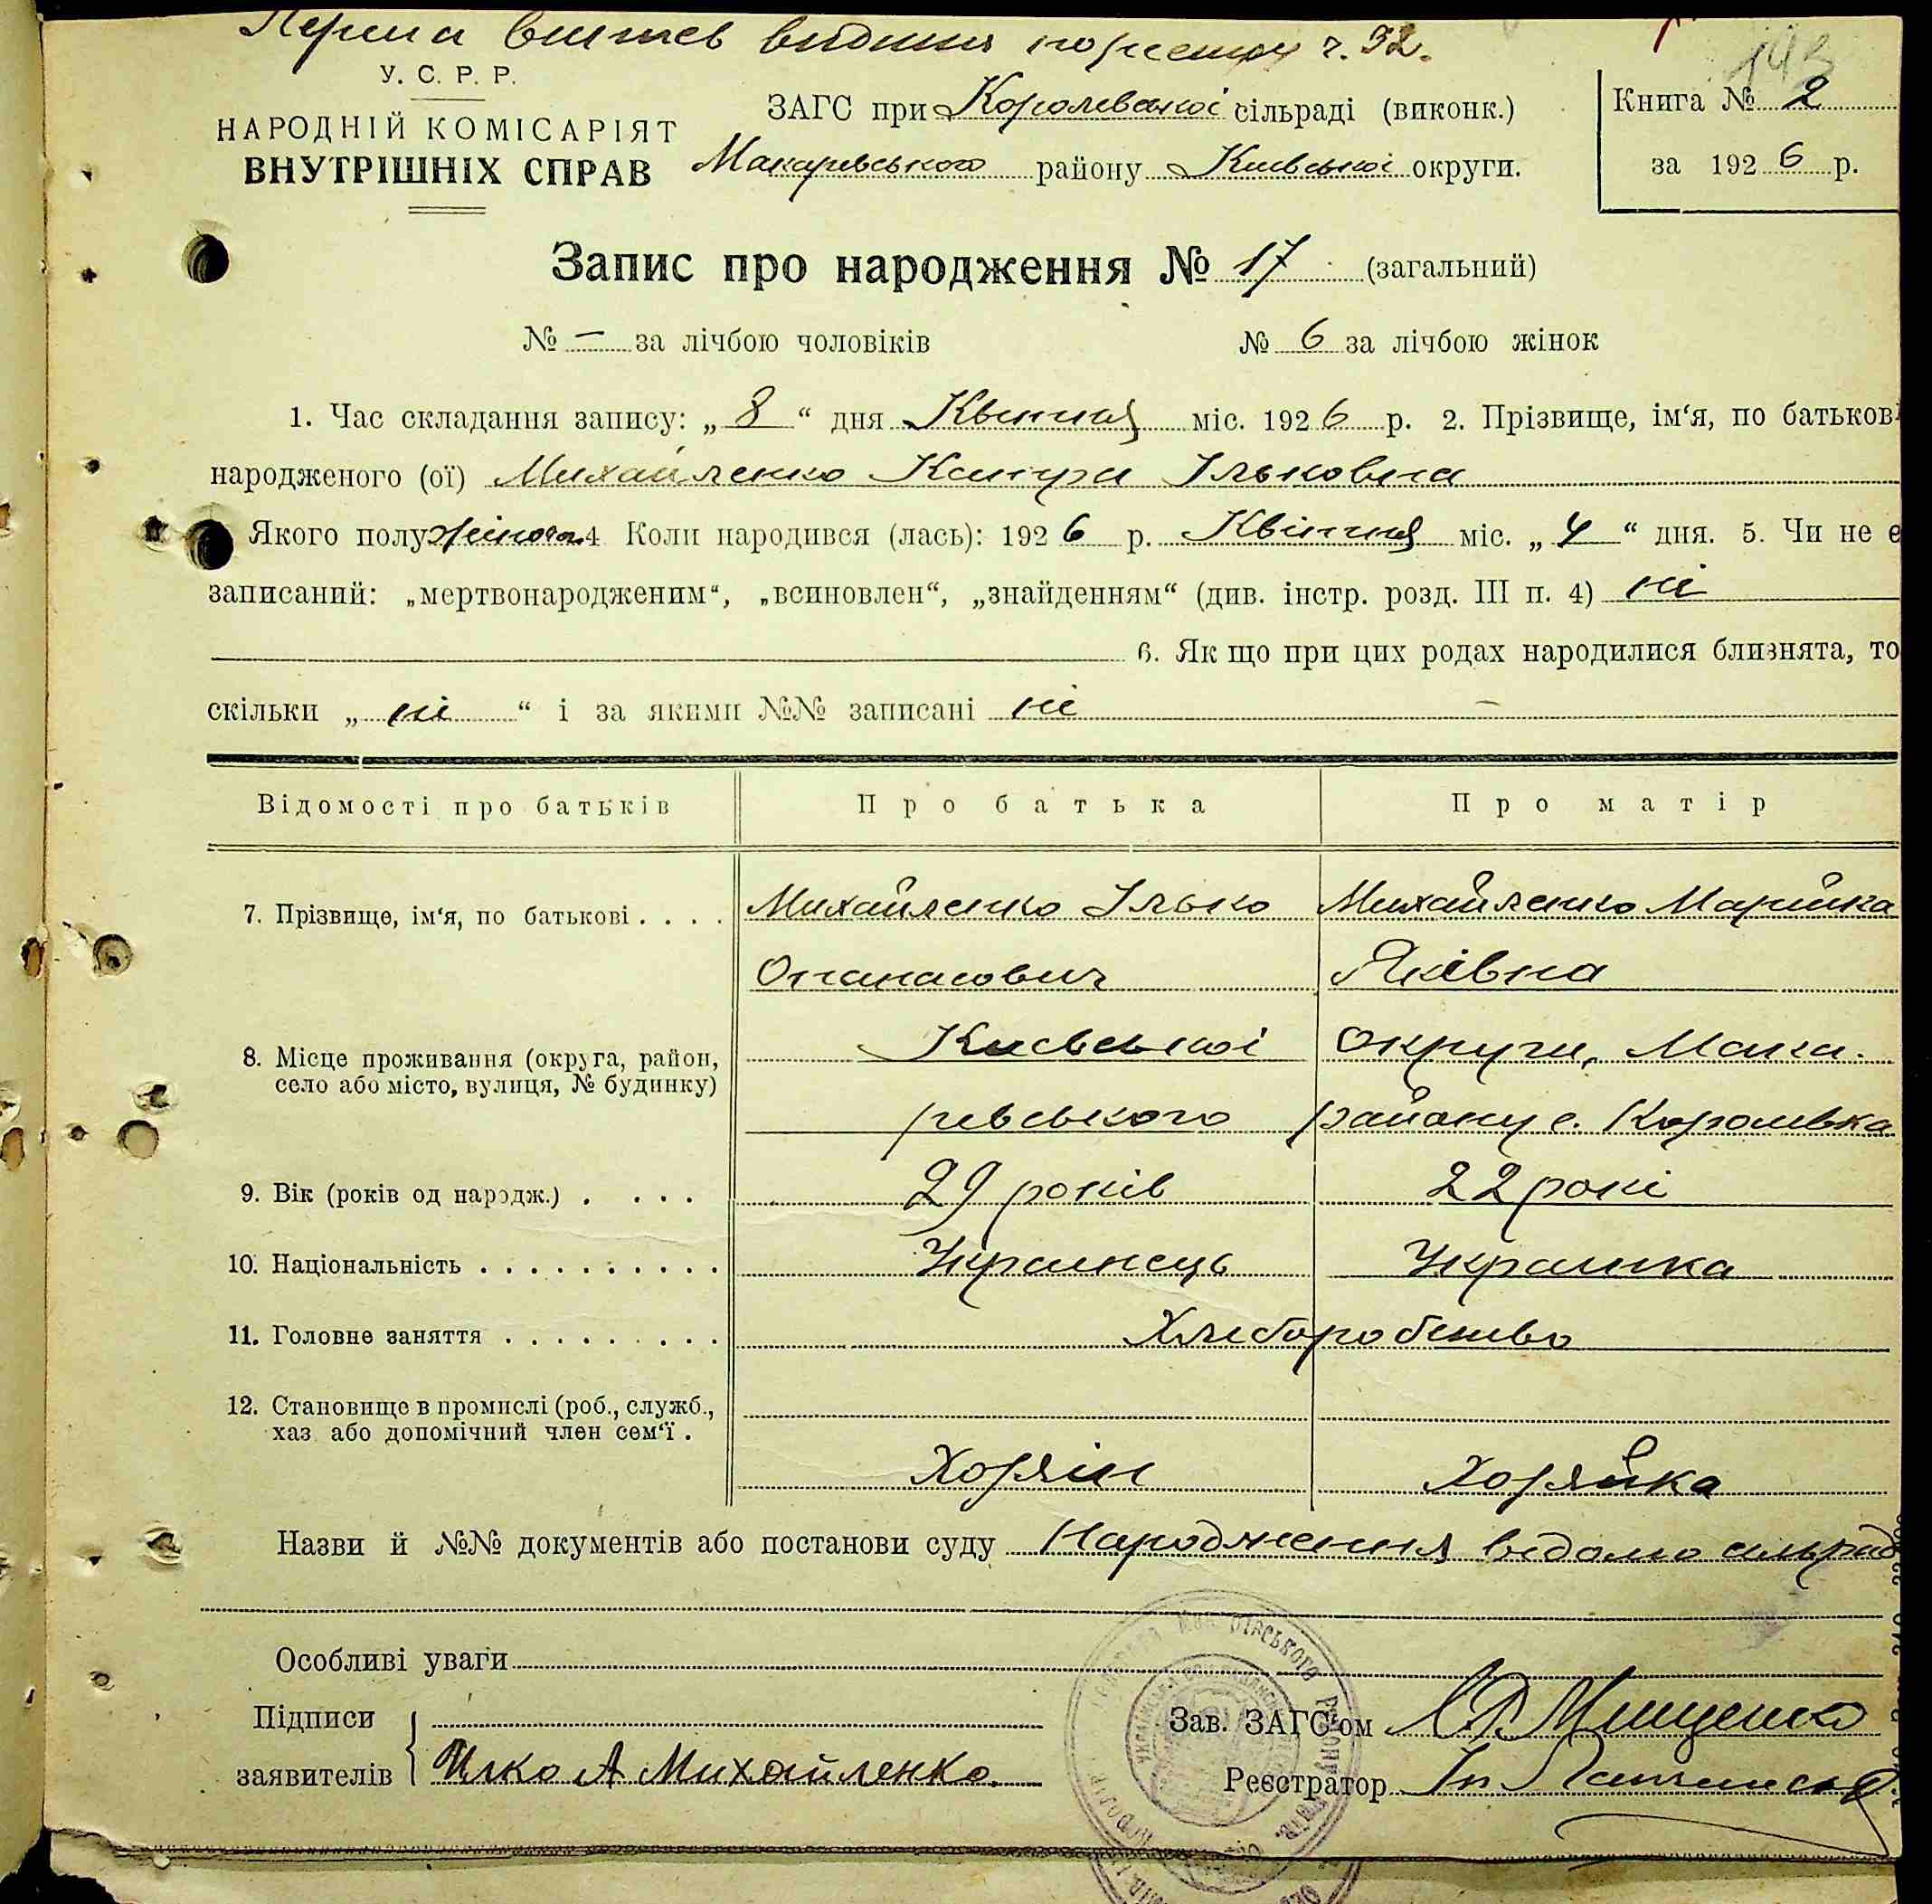 ч. 92.
143
У. С. Р. Р.
НАРОДНІЙ КОМІСАРІЯТ
ВНУТРІШНІХ СПРАВ
ЗАГС при Королевської сільраді (виконк.)
Макарівського району Київської округи.
Книга № 2
за 1926 р.
Запис про народження № 17 (загальний)
№ — за лічбою чоловіків № 6 за лічбою жінок
1. Час складання запису: „ 8 “ дня Квітня міс. 1926 р. 2. Прізвище, ім‘я, по батькові
народженого (ої) Михайленко Ільковна
Якого полу жіноч. 4 Коли народився (лась): 1926 р. Квітня міс. „ 4 “ дня. 5. Чи не є
записаний: „мертвонародженим“, „всиновлен“, „знайденням“ (див. інстр. розд. III п. 4) ні
6. Як що при цих родах народилися близнята, то
скільки „ ні “ і за якими №№ записані ні
Відомості про батьків Про батька Про матір
7. Прізвище, ім‘я, по батькові . . . . Михайленко Ілько Михайленко Марійка
Опанасович Яківна
8. Місце проживання (округа, район, Київської округи, Мака-
село або місто, вулиця, № будинку)
рівського району с. Королівка
9. Вік (років од народж.) . . . . 29 років 22 років
10. Національність . . . . . . . . . . Українець Українка
11. Головне заняття . . . . . . . . . Хліборобство
12. Становище в промислі (роб., служб.,
хаз або допомічний член сем‘ї .
Хозяїн Хозяйка
Назви й №№ документів або постанови суду Народження відомо сільраді
Особливі уваги
Підписи
заявителів Илко А Михайленко.
Зав. ЗАГС‘ом Мищенко
Реєстратор